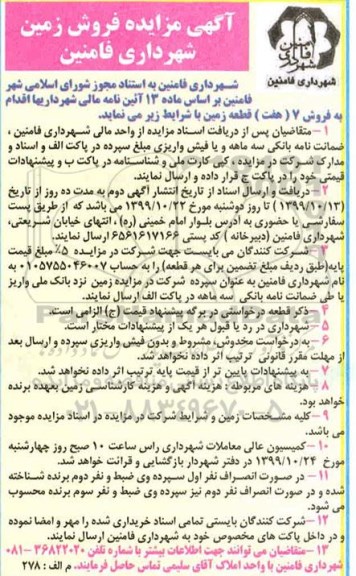 آگهی مزایده فروش زمین
شهرداری فامنین
شهرداری فامنین
شهرداری فامنین به استناد مجوز شورای اسلامی شهر
فامنین بر اساس ماده ۱۳ آئین نامه مالی شهرداریها اقدام
به فروش ۷ ( هفت ) قطعه زمین با شرایط زیر می نماید.
۱- متقاضیان پس از دریافت اسناد مزایده از واحد مالی شهرداری فامنین ،
ضمانت نامه بانکی سه ماهه و یا فیش واریزی مبلغ سپرده در پاکت الف و اسناد و
مدارک شرکت در مزایده کپی کارت ملی و شناسنامه در پاکت ب و پیشنهادات
قیمتی خود را در پاکت ج قرار داده و ارسال نمایند.
۲- دریافت و ارسال اسناد از تاریخ انتشار آگهی دوم به مدت ده روز از تاریخ
(۱۳۹۹/۱۰/۱۳) تا روز دوشنبه مورخ ۱۳۹۹/۱۰/۲۲ می باشد که از طریق پست
سفارشی یا حضوری به آدرس بلوار امام خمینی (ره) ، انتهای خیابان شریعتی،
شهرداری فامنین (دبیرخانه ) کد پستی ۶۵۶۱۶۱۷۱۶۶ ارسال نمایند.
۳- شرکت کنندگان می بایست جهت شرکت در مزایده ۵٪ مبلغ قیمت
پایه(طبق ردیف مبلغ تضمین برای هر قطعه) را به حساب ۰۱۰۵۷۵۵۰۴۶۰۰۷ به
نام شهرداری فامنین به عنوان سپرده شرکت در مزایده زمین نزد بانک ملی واریز
یا طی ضمانت نامه بانکی سه ماهه در پاکت الف ارسال نمایند.
۴- ذکر قطعه درخواستی در برگه پیشنهاد قیمت (ج) الزامی است.
۵- شهرداری در رد یا قبول هر یک از پیشنهادات مختار است.
۶- به درخواست مخدوش، مشروط و بدون فیش واریزی سپرده و ارسال بعد
از مهلت مقرر قانونی ترتیب اثر داده نخواهد شد.
۷- به پیشنهادات پایین تر از قیمت پایه ترتیب اثر داده نخواهد شد.
۸- هزینه های مربوطه : هزینه آگهی و هزینه کارشناسی زمین بعهده برنده
خواهد بود.
۹- کلیه مشخصات زمین و شرایط شرکت در مزایده در اسناد مزایده موجود
می باشد.
۱۰- کمیسیون عالی معاملات شهرداری راس ساعت ۱۰ صبح روز چهارشنبه
مورخ ۱۳۹۹/۱۰/۲۴ در دفتر شهردار بازگشایی و قرائت خواهد شد.
۱۱- در صورت انصراف نفر اول سپرده وی ضبط و نفر دوم برنده شناخته
شده و در صورت انصراف نفر دوم نیز سپرده وی ضبط و نفر سوم برنده محسوب
می شود.
۱۲- شرکت کنندگان بایستی تمامی اسناد خریداری شده را مهر و امضا نموده
و در داخل پاکت های مخصوص خود به شهرداری فامنین ارسال نمایند.
۱۳- متقاضیان می توانند جهت اطلاعات بیشتر با شماره تلفن ۳۶۸۲۲۰۲۰-۰۸۱
شهرداری فامنین با واحد املاک آقای سلیمی تماس حاصل فرمایند. م الف : ۲۷۸